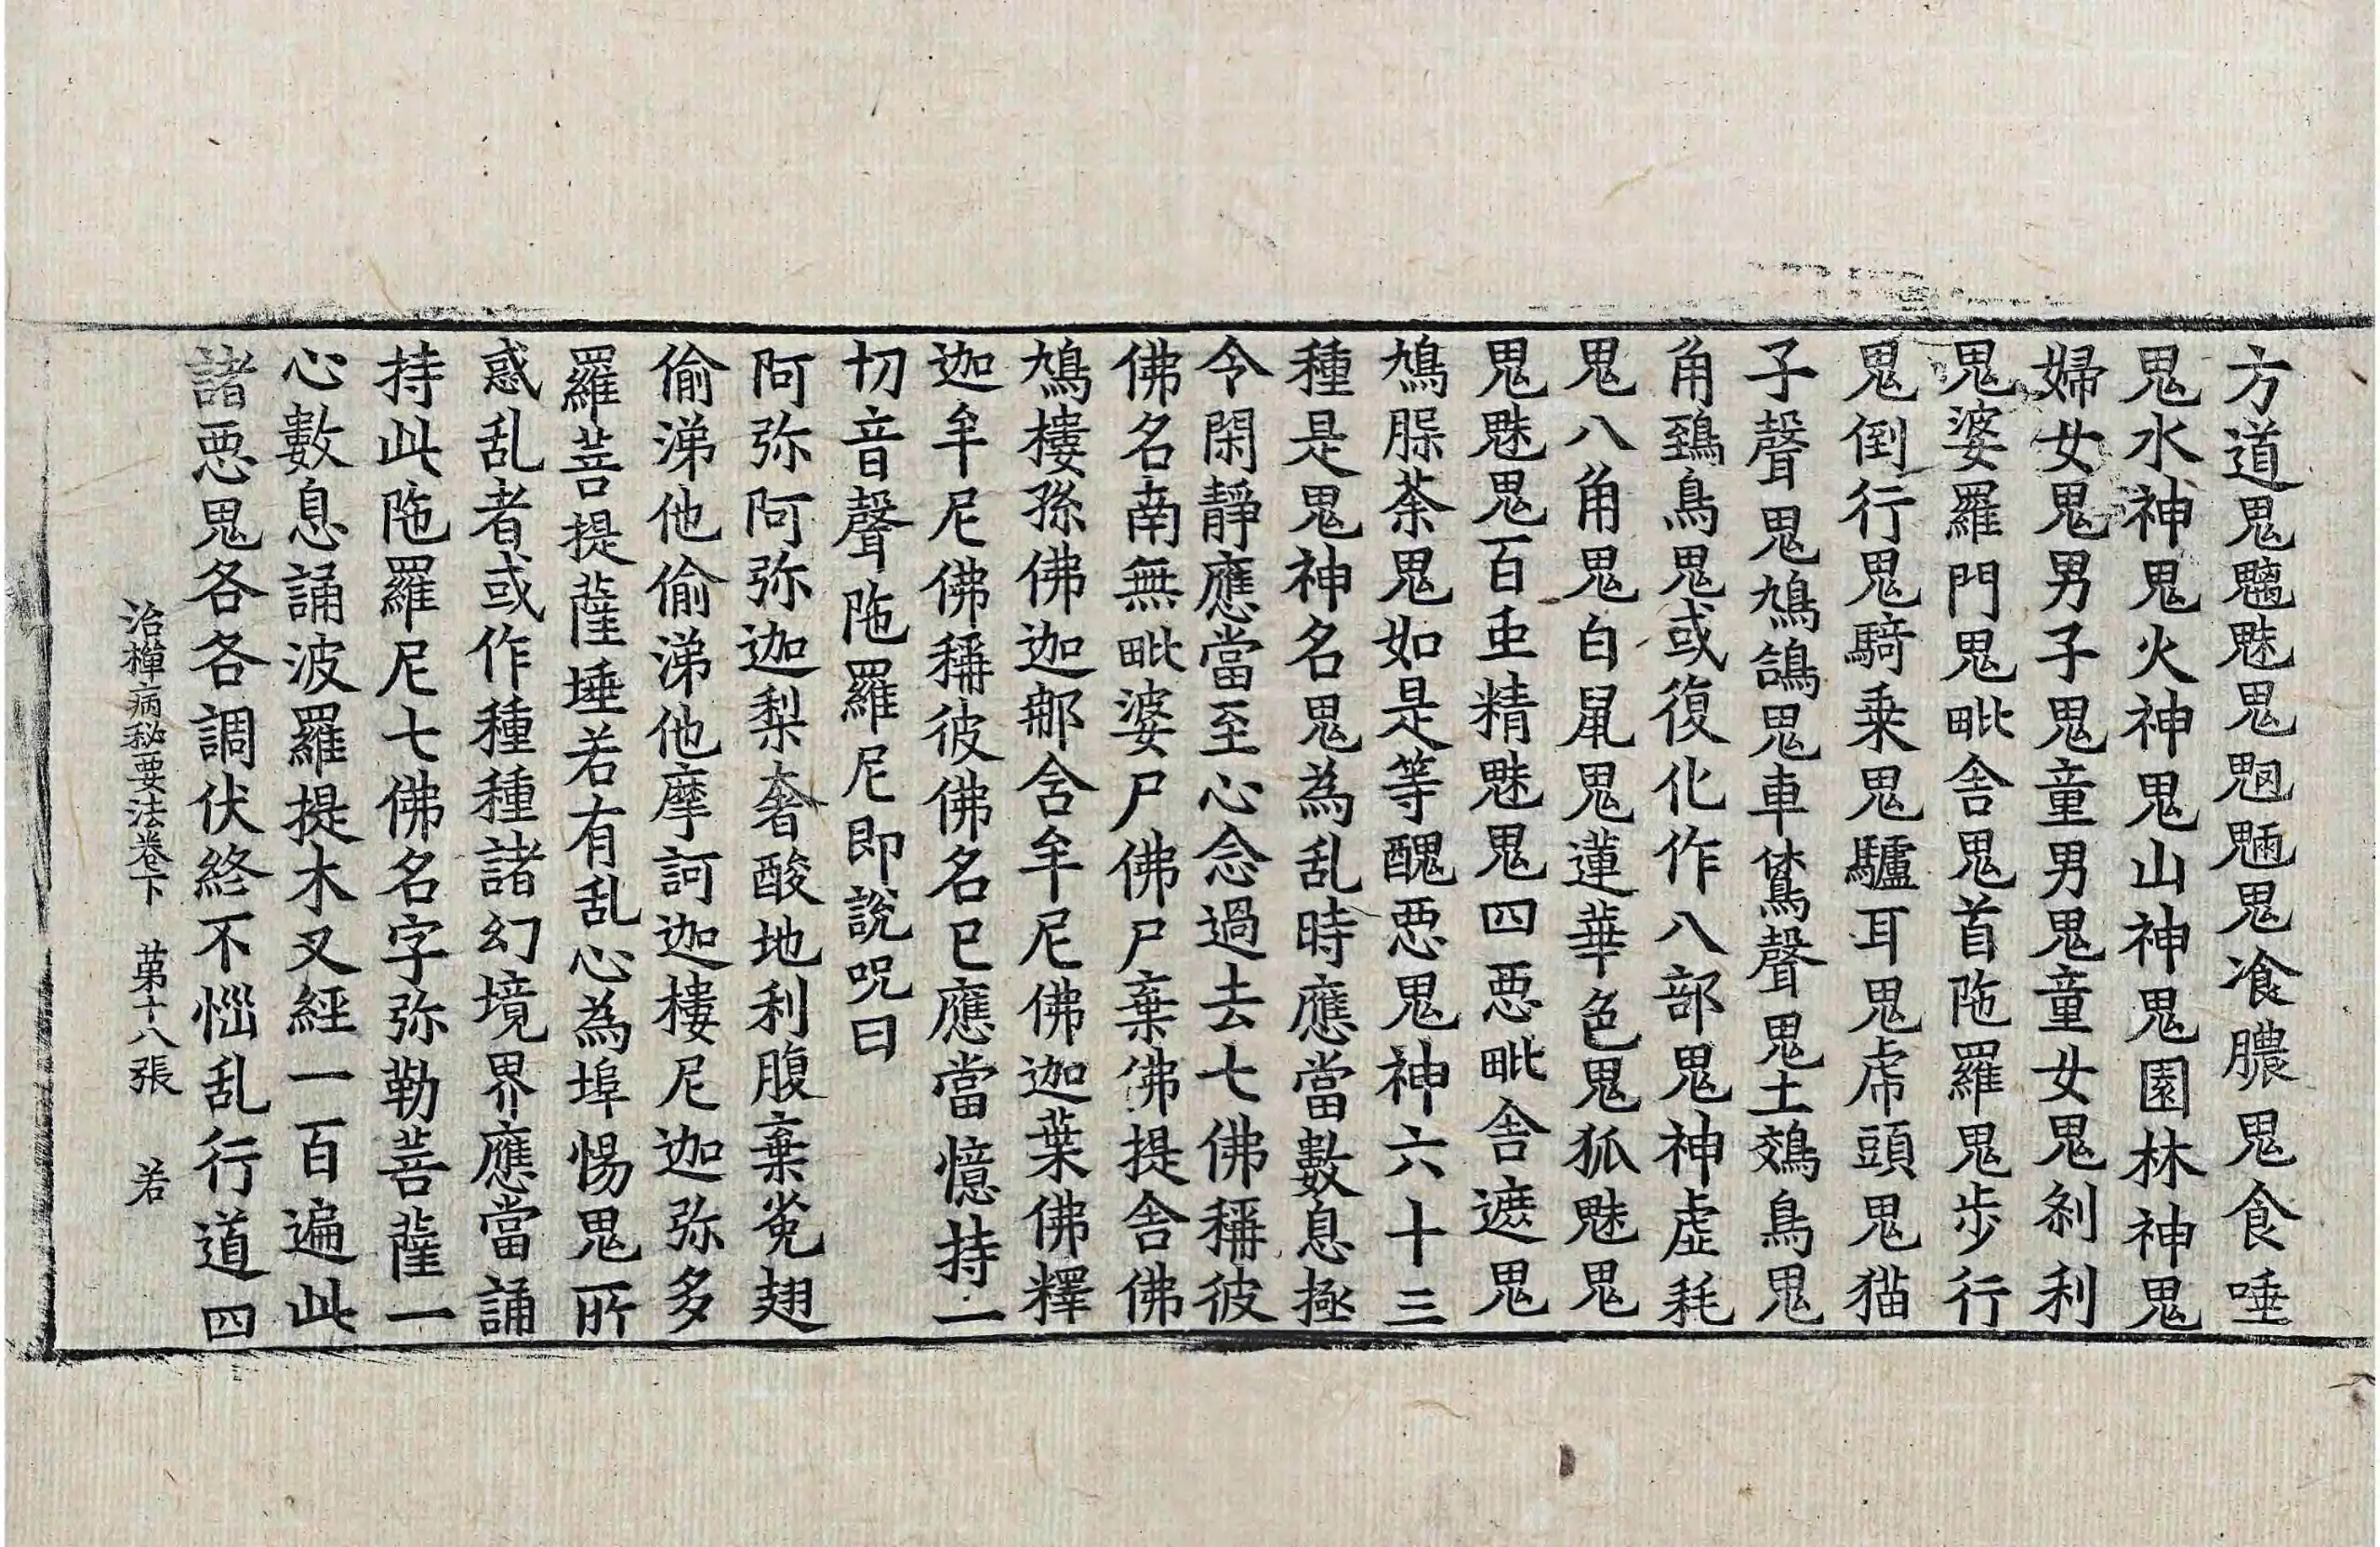 方道鬼魑魅鬼魍魎鬼飡膿鬼食唾
鬼水神鬼火神鬼山神鬼園林神鬼
婦女鬼男子鬼童男鬼童女鬼刹利
鬼婆羅門鬼毗舍鬼首陁羅鬼步行
鬼倒行鬼騎乗鬼驢耳鬼虎頭鬼猫
子聲鬼鳩鴿鬼車鵟聲鬼土鵁鳥鬼
角鵄鳥鬼或復化作八部鬼神虛耗
鬼八角鬼白鼠鬼蓮華色鬼狐魅鬼
鬼魅鬼百虫精魅鬼四惡毗舍遮鬼
鳩腬荼鬼如是等醜惡鬼神六十三
種是鬼神名鬼為乱時應當數息極
令閑靜應當至心念過去七佛稱彼
佛名南無毗婆尸佛尸棄佛提舍佛
鳩樓孫佛迦那含牟尼佛迦葉佛釋
迦牟尼佛稱彼佛名已應當憶持一
切音聲陁羅尼即說呪曰
阿弥阿弥迦梨奢酸地利腹棄㝹翅
偷涕他偷涕他摩訶迦樓尼迦弥多
羅菩提薩埵若有乱心為埠惕鬼所
惑乱者或作種種諸幻境界應當誦
持此陁羅尼七佛名字弥勒菩薩一
心數息誦波羅提木叉經一百遍此
諸惡鬼各各調伏終不惱乱行道四
治禪病秘要法卷下　第十八張　若